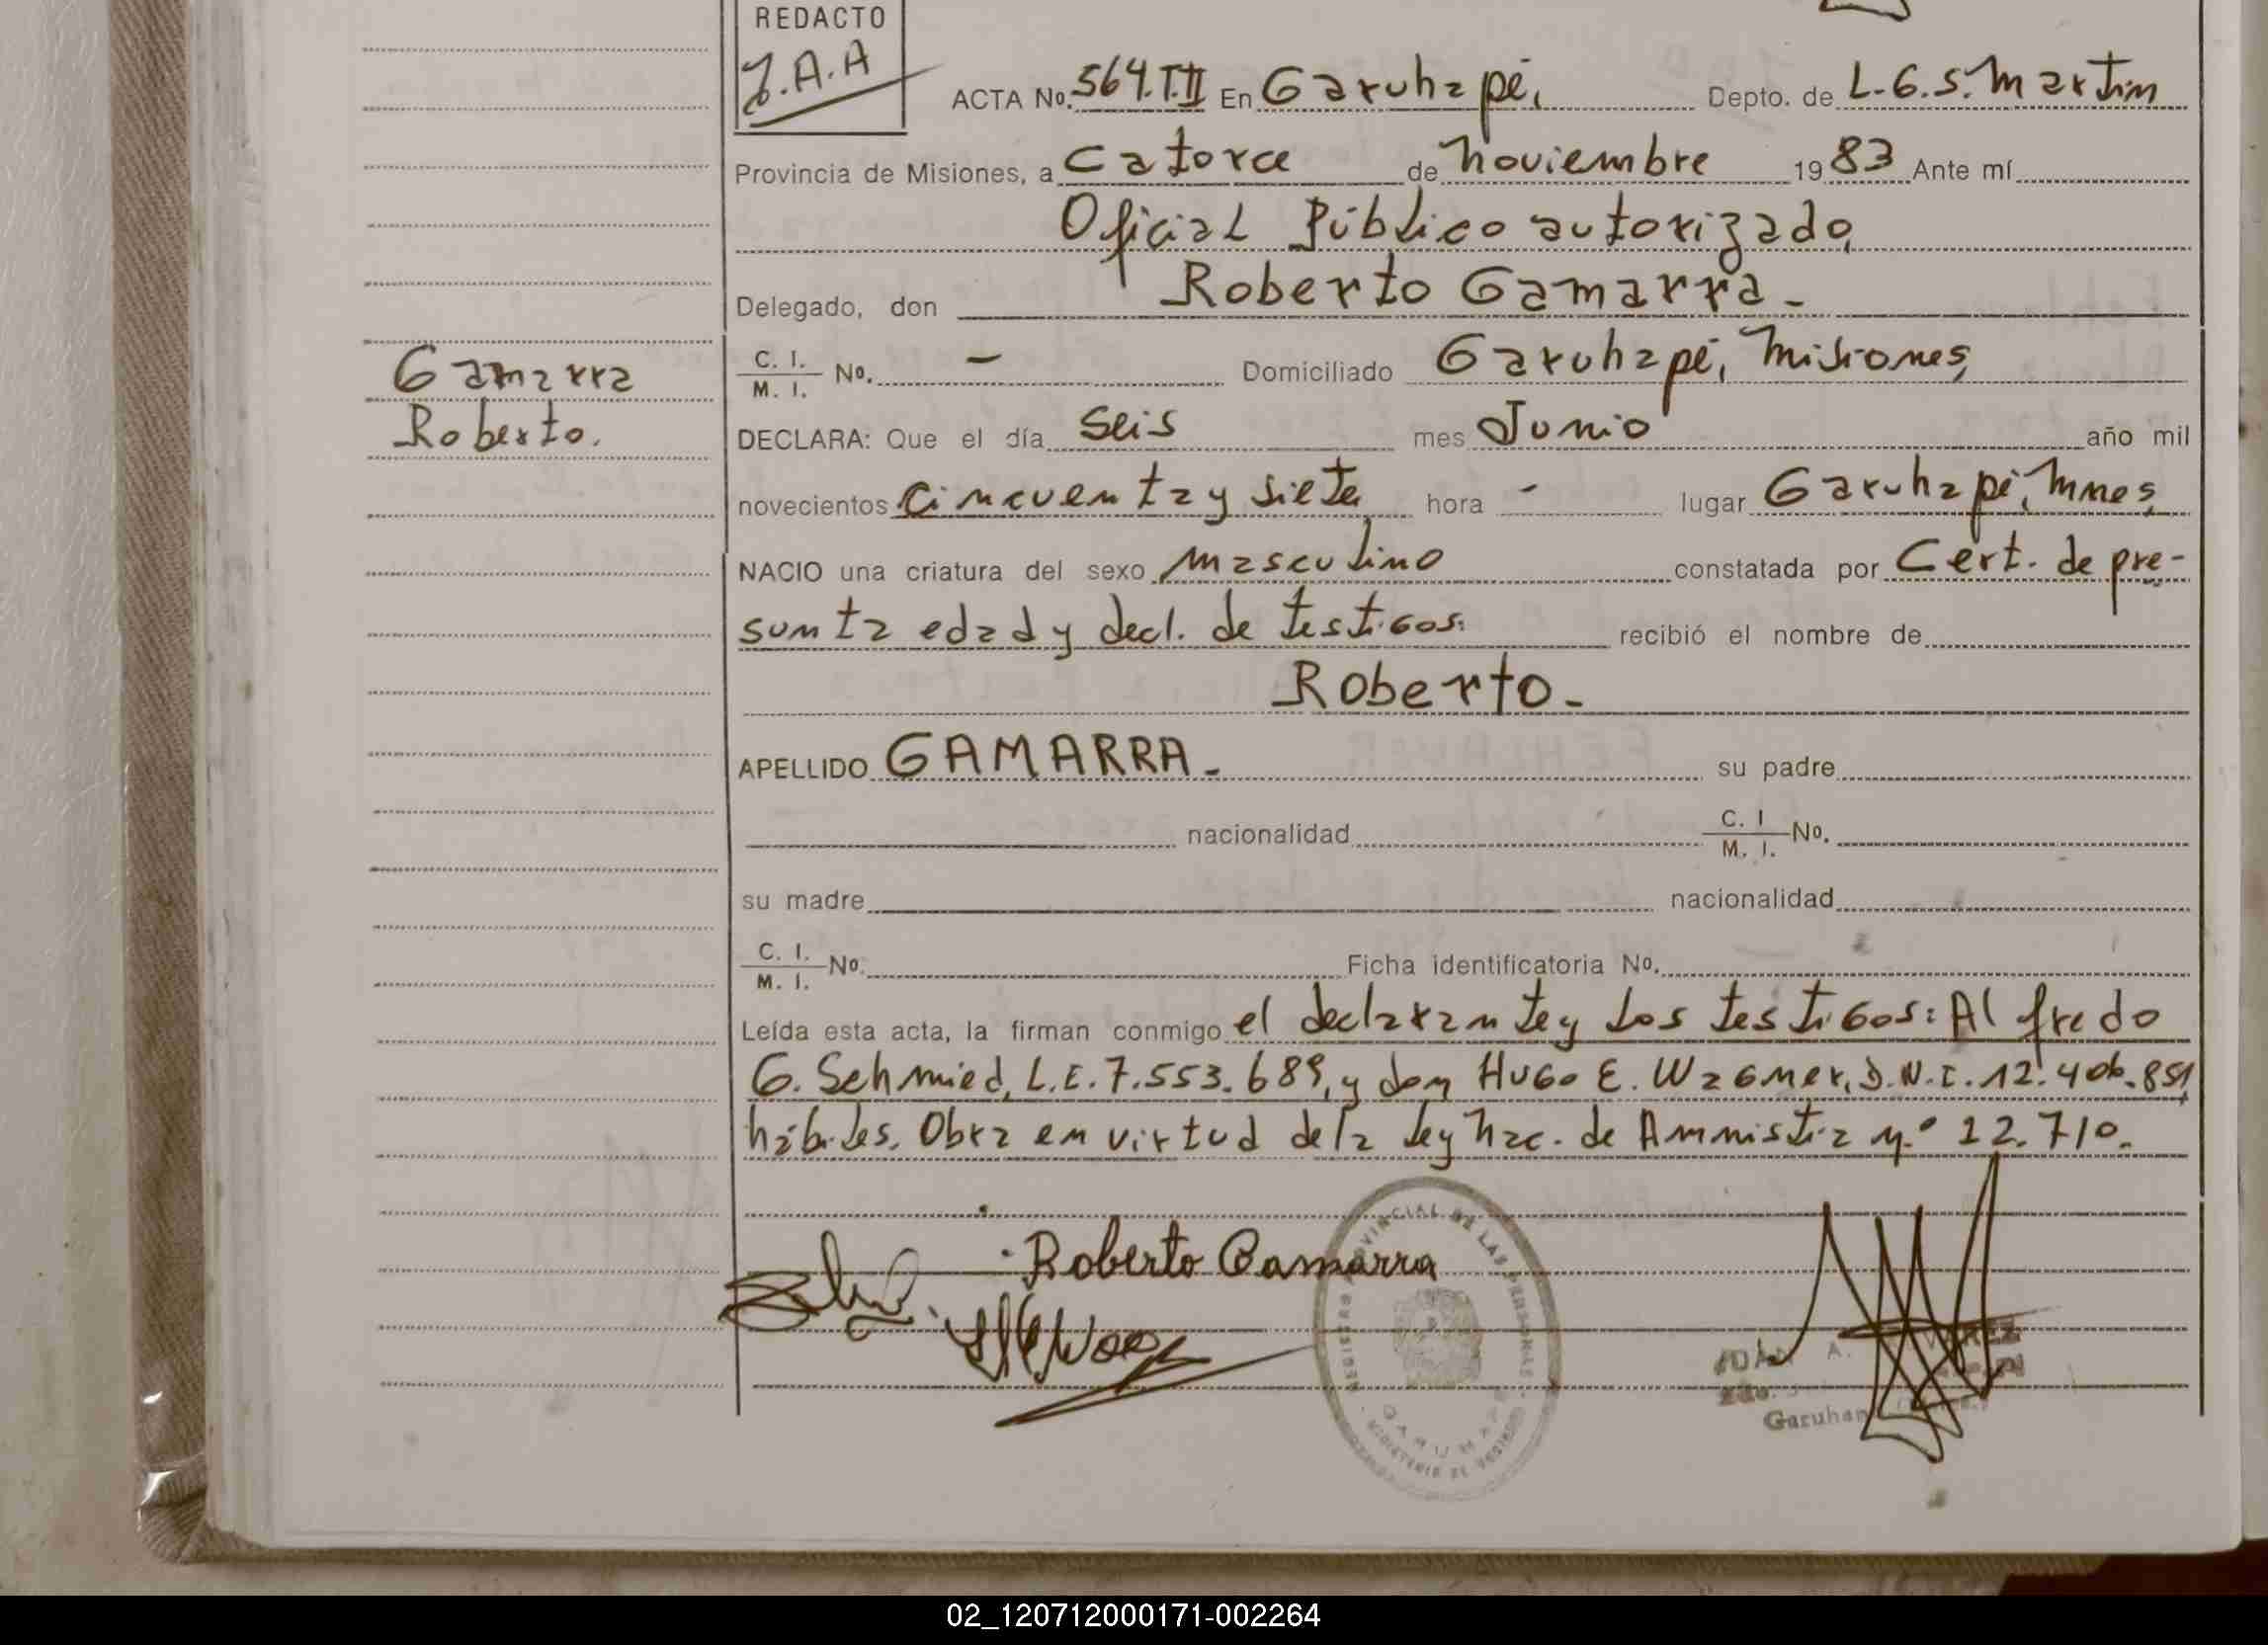 REDACTO
J.A.A
ACTA No. 564.T.II En Garuhapé, Depto. de L.G.S. Martín
Provincia de Misiones, a Catorce de noviembre 1983 Ante mí
Oficial Público autorizado,
Delegado, don Roberto Gamarra.-
Gamarra
Roberto.
C. I. M. I. No. - Domiciliado Garuhapé, Misiones,
DECLARA: Que el día seis mes Junio año mil
novecientos cincuenta y siete, hora - lugar Garuhapé, Mnes,
NACIO una criatura del sexo masculino constatada por Cert. de pre-
sunta edad y decl. de testigos. recibió el nombre de
Roberto.-
APELLIDO GAMARRA.- su padre
nacionalidad C. I M. I. No.
su madre nacionalidad
C. I. M. I. No. Ficha identificatoria No.
Leída esta acta, la firman conmigo el declarante y los testigos: Alfredo
G. Schmied, L.E. 7.553.689, y don Hugo E. Wagner, D.N.I. 12.406.851,
hábiles. Obra en virtud de la ley nac. de Amnistía n.º 12.710.
Roberto Gamarra
PROVINCIAL DE LAS PERSONAS
GARUHAPE
JUAN A.
Garuhap
02_120712000171-002264